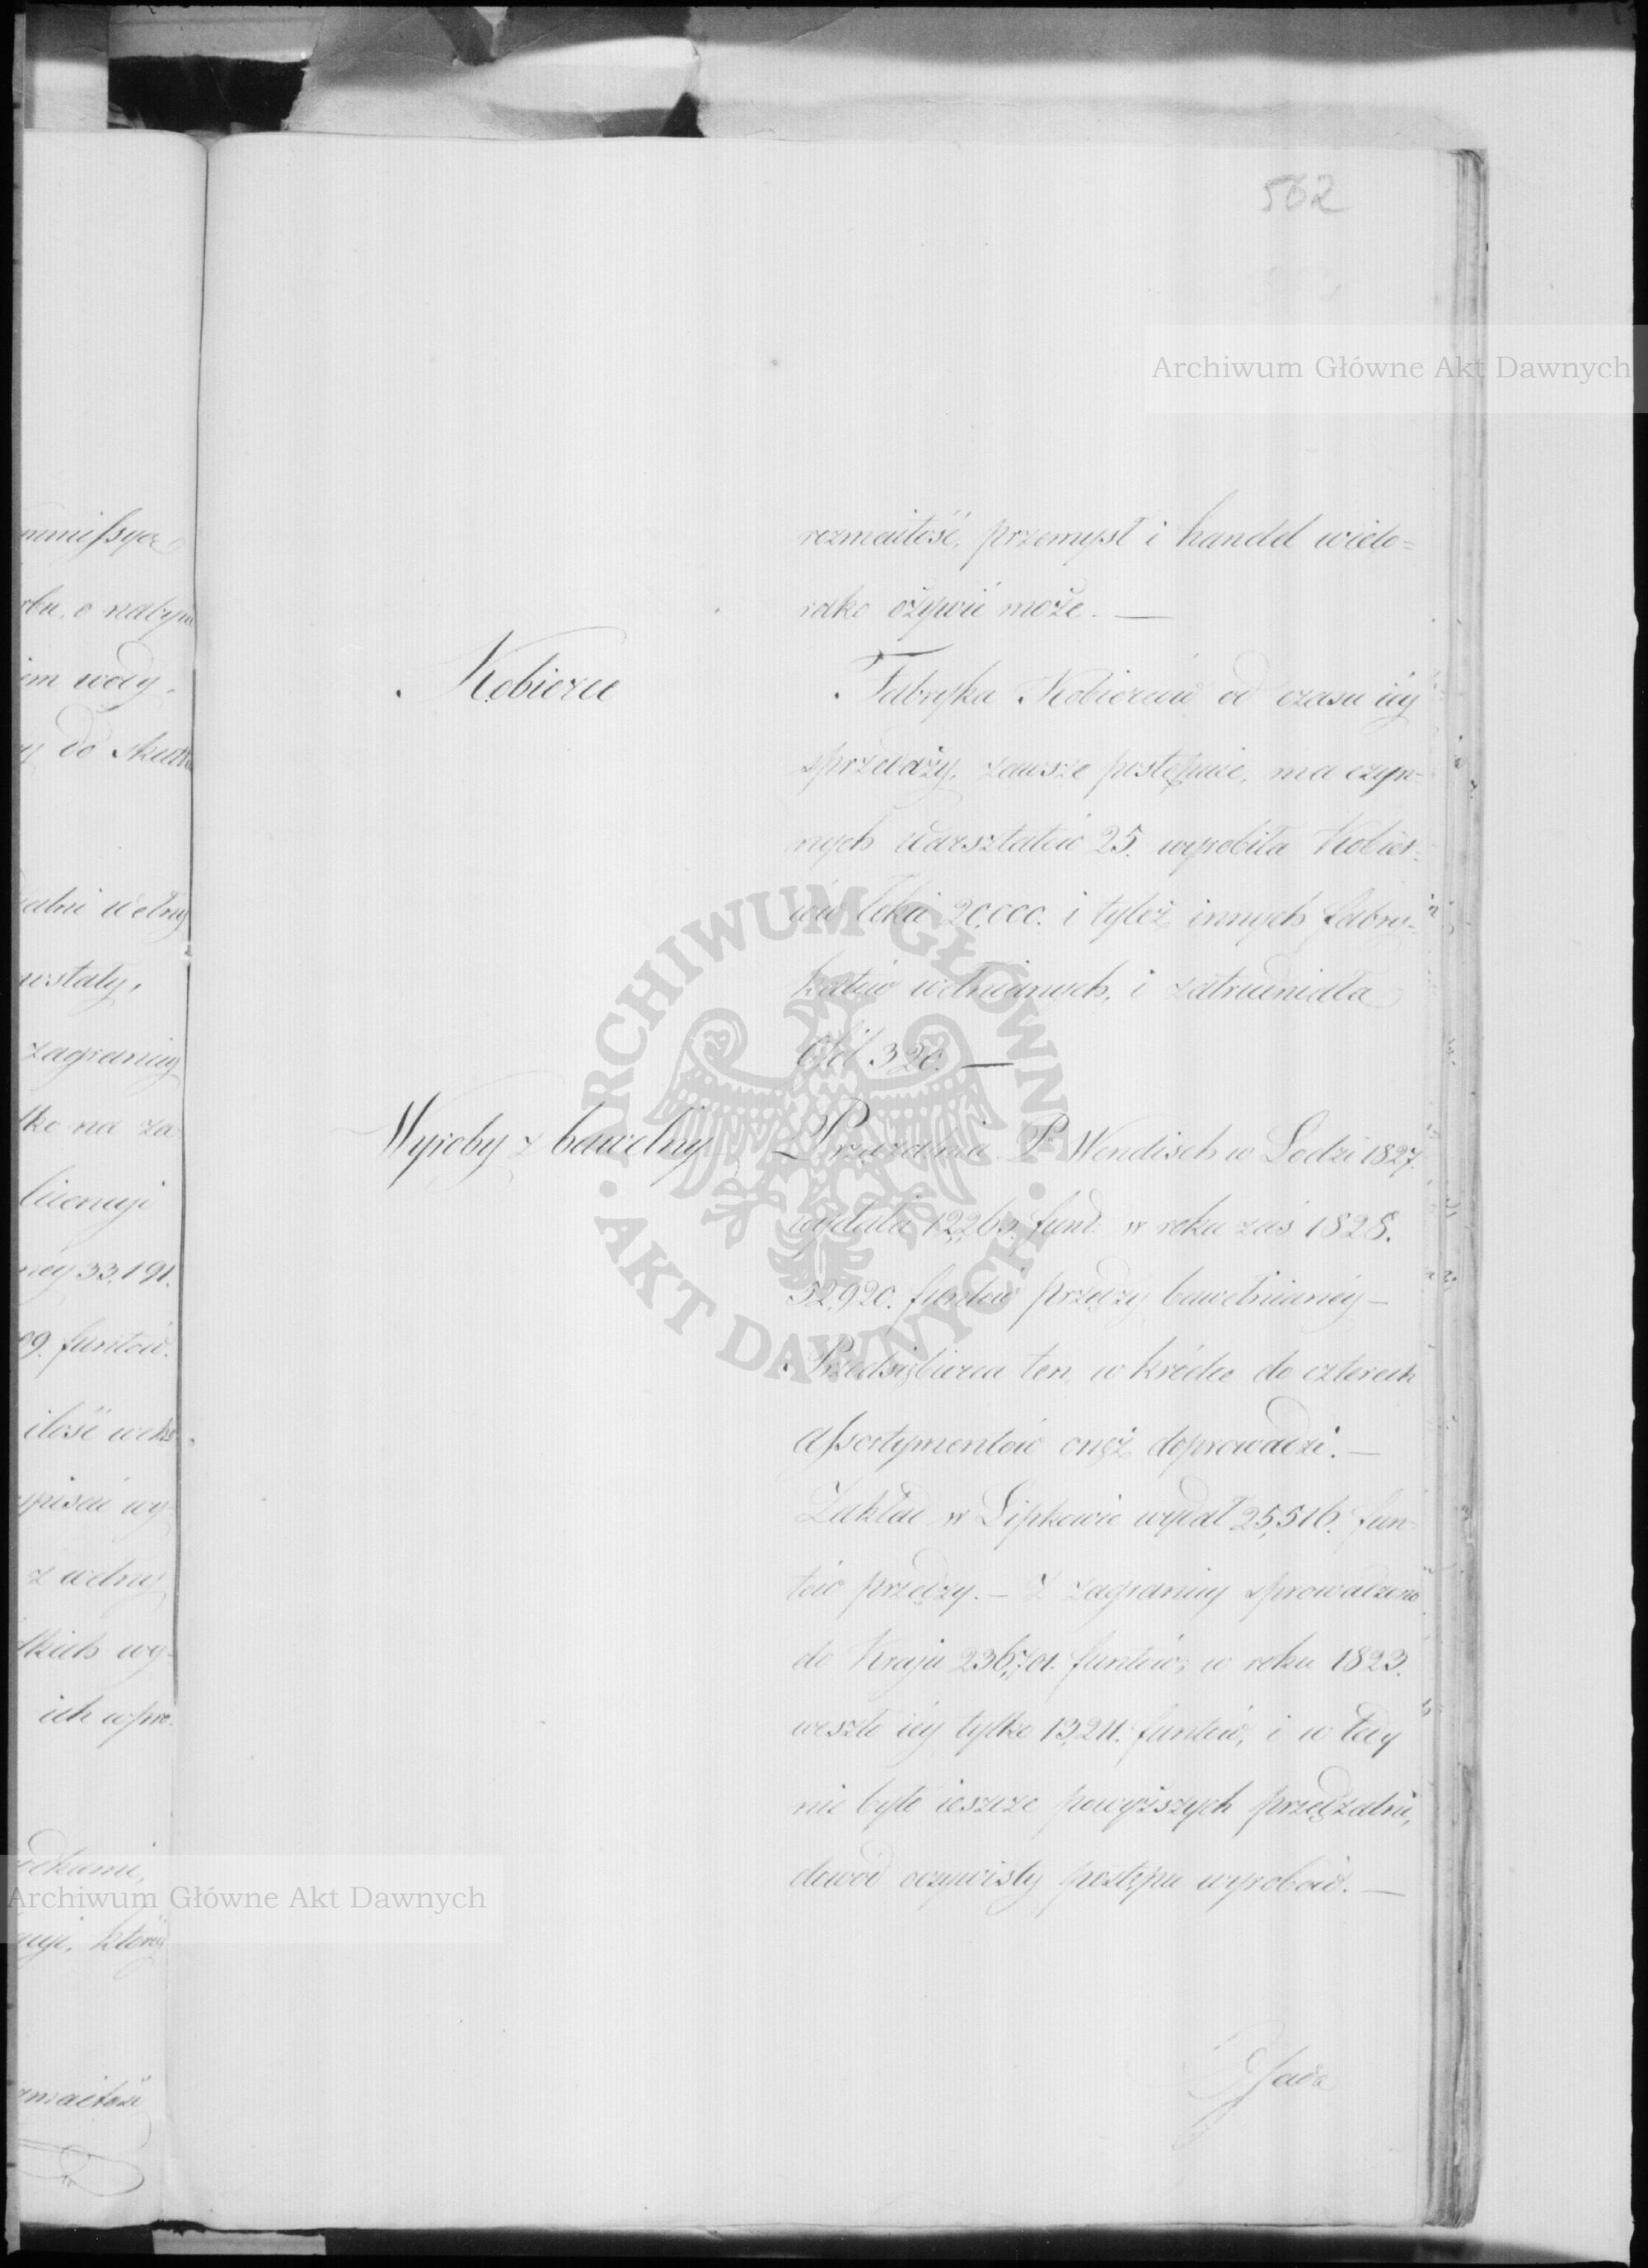 562
Archiwum Główne Akt Dawnych
rozmaitość, przemysł i handel wielo=
rako ożywić może. —
Kobierce
Fabryka Kobierców od czasu iéy
sprzedaży, zawsze postępuie, ma czyn-
nych Warsztatów 25. wyrobiła Kobier-
ców łokci 20,000. i tyleż innych fabry-
katów wełnianych, i zatrudniała
Osób 320. —
ARCHIWUM GŁÓWNE AKT DAWNYCH
Wyroby z bawełny
Przędzalnia P. Wendisch w Łodzi 1827
wydała 12,265. funt: w roku zaś 1828.
52,920. funtów przędzy bawełnianéy —
Przedsiębierca ten, w krótce do czterech
assortymentów onęż doprowadzi. —
Zakład w Lipkowie wydał 25,516. fun-
tów przędzy. — Z zagranicy sprowadzono
do Kraju 236,701. funtów; w roku 1823.
weszło iéy tylko 13,211. funtów, i w tedy
nie było ieszcze powyższych przędzalni,
dowód oczywisty postępu wyrobów. —
Osada
mmissya
rbu, o nabyci
em wody,
y do skutku
alni wełny
ustały,
zagranicy
lko na za
licencyi
néy 33,191.
09. funtów.
ilość
wy-
z wełny
lkich wy-
ich wpro-
odkami,
Archiwum Główne Akt Dawnych
cyi, któréy
zmaitość